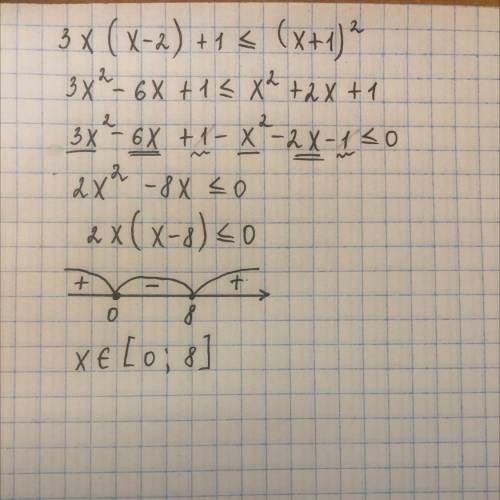 3x(x-2)+1 ≤ (x+1)²
3x²-6x+1 ≤ x²+2x+1
3x²-6x+1-x²-2x-1 ≤ 0
2x²-8x ≤ 0
2x(x-8) ≤ 0
+ - +
0 8
x ∈ [0; 8]